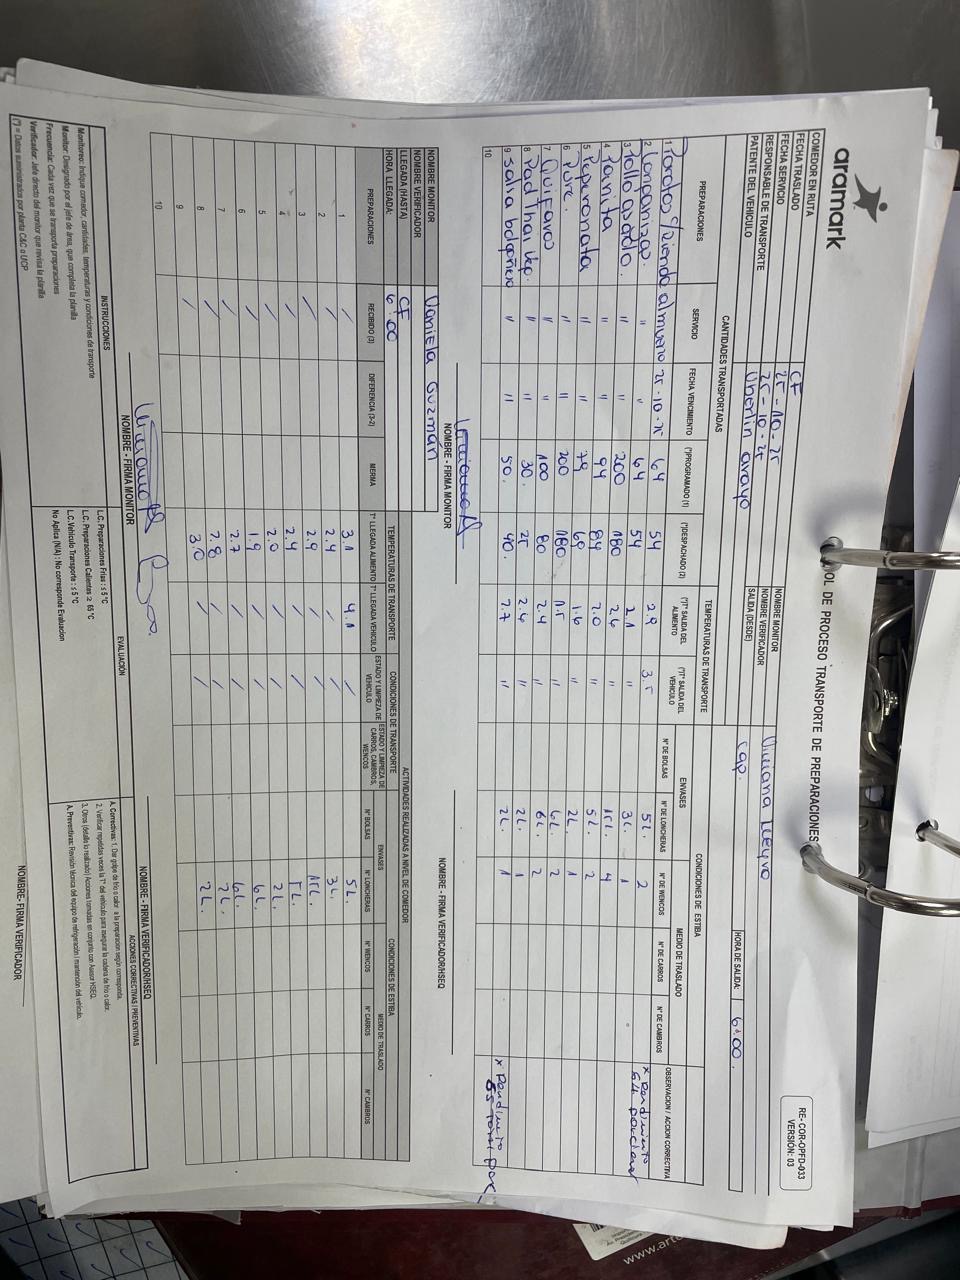 aramark
CONTROL DE PROCESO TRANSPORTE DE PREPARACIONES
RE- COR-OPFD-033
VERSIÓN: 03
COMEDOR EN RUTA CF
FECHA TRASLADO 25-10-25
FECHA SERVICIO 25-10-25
RESPONSABLE DE TRANSPORTE
PATENTE DEL VEHICULO
NOMBRE MONITOR
NOMBRE VERIFICADOR
SALIDA (DESDE) cap.
HORA DE SALIDA: 6:00.
CANTIDADES TRANSPORTADAS TEMPERATURAS DE TRANSPORTE CONDICIONES DE ESTIBA
ENVASES MEDIO DE TRASLADO
PREPARACIONES SERVICIO FECHA VENCIMIENTO (*)PROGRAMADO (1) (*)DESPACHADO (2) (*)T° SALIDA DEL ALIMENTO (*)T° SALIDA DEL VEHICULO N° DE BOLSAS N° DE LONCHERAS N° DE WENCOS N° DE CARROS N° DE CAMBROS OBSERVACION / ACCION CORRECTIVA
1 Porotos c/rienda almuerzo 25-10-25 64 54 2.9 3.5 5L. 2 x Rendimiento 64 porciones
2 Longanizas. " " 64 54 2.1 " 3L. 1
3 Pollo asado. " " 200 180 2.6 " 15L. 4
4 Panita " " 94 84 2.0 " 5L. 2
5 Peperonata " " 79 69 1.6 " 2L. 1
6 Pure. " " 200 180 1.5 " 6L. 2
7 Quifaros " " 100 80 2.4 " 6L. 2
8 Pad thai veg. " " 30. 25 2.4 " 2L. 1
9 Salsa boloñesa " " 50. 40. 2.7 " 2L. 1 x Rendimiento
10
NOMBRE - FIRMA MONITOR NOMBRE - FIRMA VERIFICADOR/HSEQ
NOMBRE MONITOR Daniela Guzmán
NOMBRE VERIFICADOR
LLEGADA (HASTA) CF
HORA LLEGADA: 6:00
ACTIVIDADES REALIZADAS A NIVEL DE COMEDOR
TEMPERATURAS DE TRANSPORTE CONDICIONES DE TRANSPORTE ENVASES CONDICIONES DE ESTIBA
MEDIO DE TRASLADO
PREPARACIONES RECIBIDO (3) DIFERENCIA (3-2) MERMA T° LLEGADA ALIMENTO T° LLEGADA VEHICULO ESTADO Y LIMPIEZA DE VEHICULO ESTADO Y LIMPIEZA DE CARROS, CAMBROS, WENCOS N° BOLSAS N° LONCHERAS N° WENCOS N° CARROS N° CAMBROS
1 / 3.1 4.1 / 5L.
2 / 2.4 / / 3L.
3 / 2.9 / / 15L.
4 / 2.4 / / 5L.
5 / 2.0 / / 2L.
6 / 1.9 / / 6L.
7 / 2.7 / / 6L.
8 / 2.8 / / 2L.
9 / 3.0 / / 2L.
10
NOMBRE - FIRMA MONITOR NOMBRE - FIRMA VERIFICADOR/HSEQ
INSTRUCCIONES EVALUACIÓN ACCIONES CORRECTIVAS / PREVENTIVAS
Monitoreo: Indique comedor, cantidades, temperaturas y condiciones de transporte
Monitor: Designado por el jefe de área, que completa la planilla
Frecuencia: Cada vez que se transporta preparaciones
Verificador: Jefe directo del monitor que revisa la planilla
(*) = Datos suministrados por planta C&C o UCP
L.C. Preparaciones Frías : ≤ 5 °C
L.C. Preparaciones Calientes ≥ 65 °C
L.C. Vehículo Transporte : ≤ 5 °C
No Aplica (N/A) : No corresponde Evaluacion
A. Correctivas: 1. Dar golpe de frío o calor a la preparación según corresponda.
2. Verificar repetidas veces la T° del vehículo para asegurar la cadena de frío o calor.
3. Otros (detalle lo realizado) Acciones tomadas en conjunto con Asesor HSEQ.
A. Preventivas: Revisión técnica del equipo de refrigeración / mantención del vehículo.
NOMBRE- FIRMA VERIFICADOR